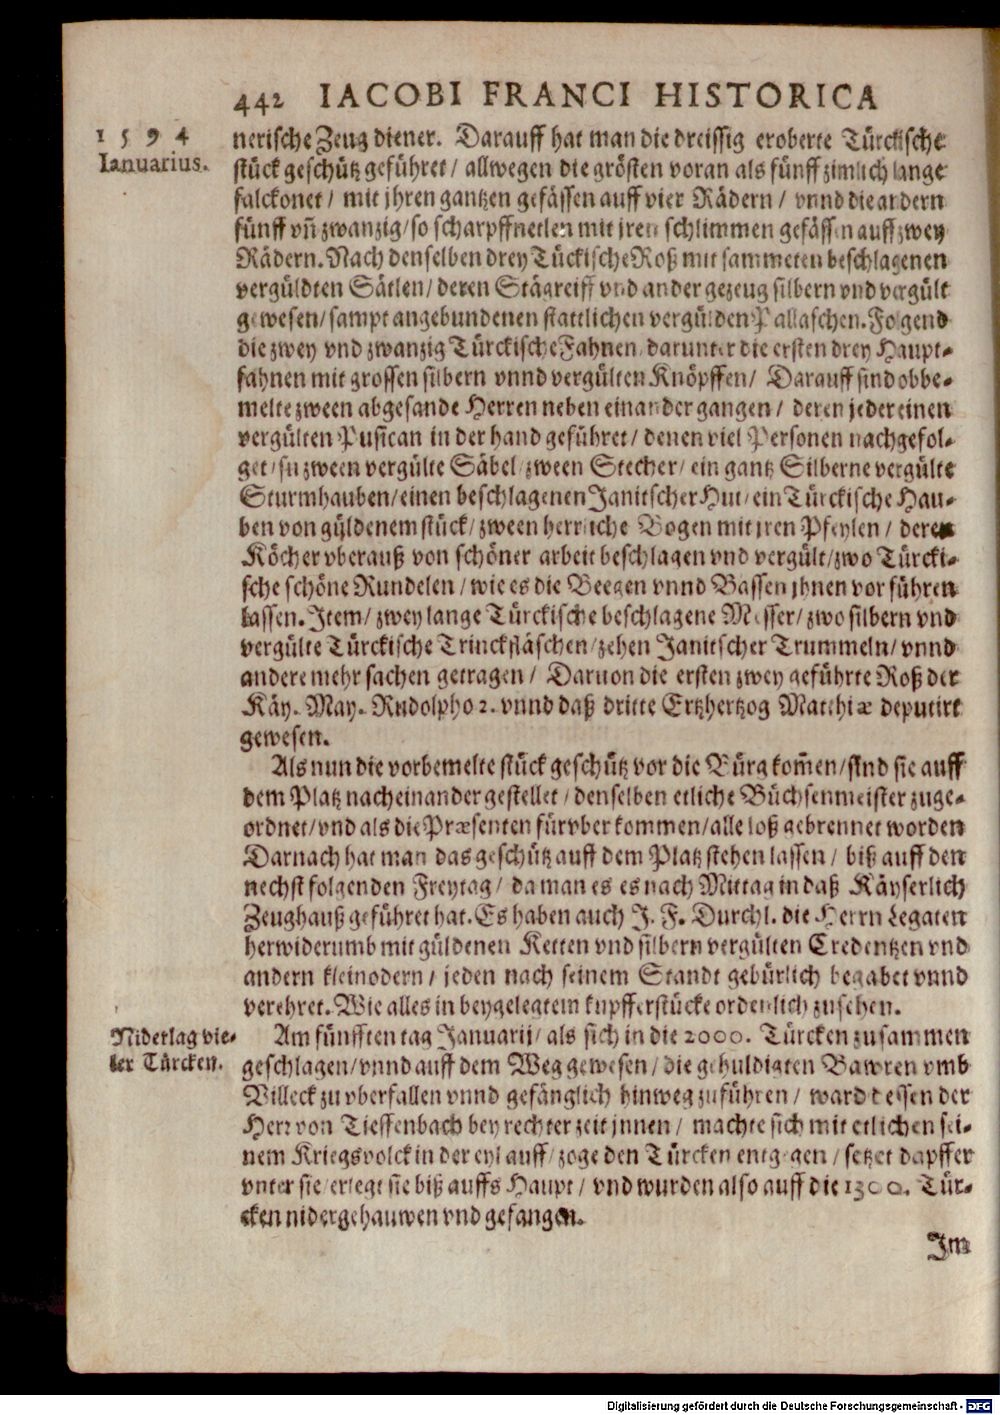 442 IACOBI FRANCI HISTORICA
1594
Ianuarius.
nerische Zeug diener. Darauff hat man die dreissig eroberte Türckische
stück geschütz geführet / allwegen die grösten voran als fünff zimlich lange
falckonet / mit jhren gantzen gefässen auff vier Rädern / vnnd die andern
fünff vñ zwanzig / so scharpffnetlen mit jren schlimmen gefässen auff zwey
Rädern. Nach denselben drey Tückische Roß mit sammeten beschlagenen
vergüldten Sätlen / deren Stägreiff vnd ander gezeug silbern vnd vergült
gewesen / sampt angebundenen stattlichen vergülden Pallaschen. Folgend
die zwey vnd zwanzig Türckische Fahnen / darunter die ersten drey Haupt-
fahnen mit grossen silbern vnnd vergülten Knöpffen / Darauff sind obbe-
melte zween abgesande Herren neben einander gangen / deren jeder einen
vergülten Pusican in der hand geführet / denen viel Personen nachgefol-
get / so zween vergülte Säbel / zween Stecher / ein gantz Silberne vergülte
Sturmhauben / einen beschlagenen Janitscher Hut / ein Türckische Hau-
ben von gyldenem stück / zween herrliche Bogen mit jren Pfeylen / deren
Köcher vberauß von schöner arbeit beschlagen vnd vergült / zwo Türcki-
sche schöne Rundelen / wie es die Beegen vnnd Bassen jhnen vor führen
lassen. Item / zwey lange Türckische beschlagene Messer / zwo silbern vnd
vergülte Türckische Trinckfläschen / zehen Janitscher Trummeln / vnnd
andere mehr sachen getragen / Daruon die ersten zwey geführte Roß der
Käy. May. Rudolpho 2. vnnd daß dritte Ertzhertzog Matthiæ deputirt
gewesen.
Als nun die vorbemelte stück geschütz vor die Bürg kom̃en / sind sie auff
dem Platz nacheinander gestellet / denselben etliche Büchsenmeister zuge-
ordnet / vnd als die Præsenten fürvber kommen / alle loß gebrennet worden
Darnach hat man das geschütz auff dem Platz stehen lassen / biß auff den
nechst folgenden Freytag / da man es es nach Mittag in daß Käyserlich
Zeughauß geführet hat. Es haben auch J. F. Durchl. die Herrn Legaten
herwiderumb mit güldenen Ketten vnd silbern vergülten Credentzen vnd
andern kleinodern / jeden nach seinem Standt gebürlich begabet vnnd
verehret. Wie alles in beygelegtem kupfferstücke ordenlich zusehen.
Niderlag vie-
ler Türcken.
Am fünfften tag Januarij / als sich in die 2000. Türcken zusammen
geschlagen / vnnd auff dem Weg gewesen / die gehuldigten Bawren vmb
Villeck zu vberfallen vnnd gefänglich hinweg zuführen / ward dessen der
Herr von Tieffenbach bey rechter zeit jnnen / machte sich mit etlichen sei-
nem Kriegsvolck in der eyl auff / zoge den Türcken entgegen / setzet dapffer
vnter sie / erlegt sie biß auffs Haupt / vnd wurden also auff die 1300. Tür-
cken nidergehauwen vnd gefangen.
Im
Digitalisierung gefördert durch die Deutsche Forschungsgemeinschaft - DFG